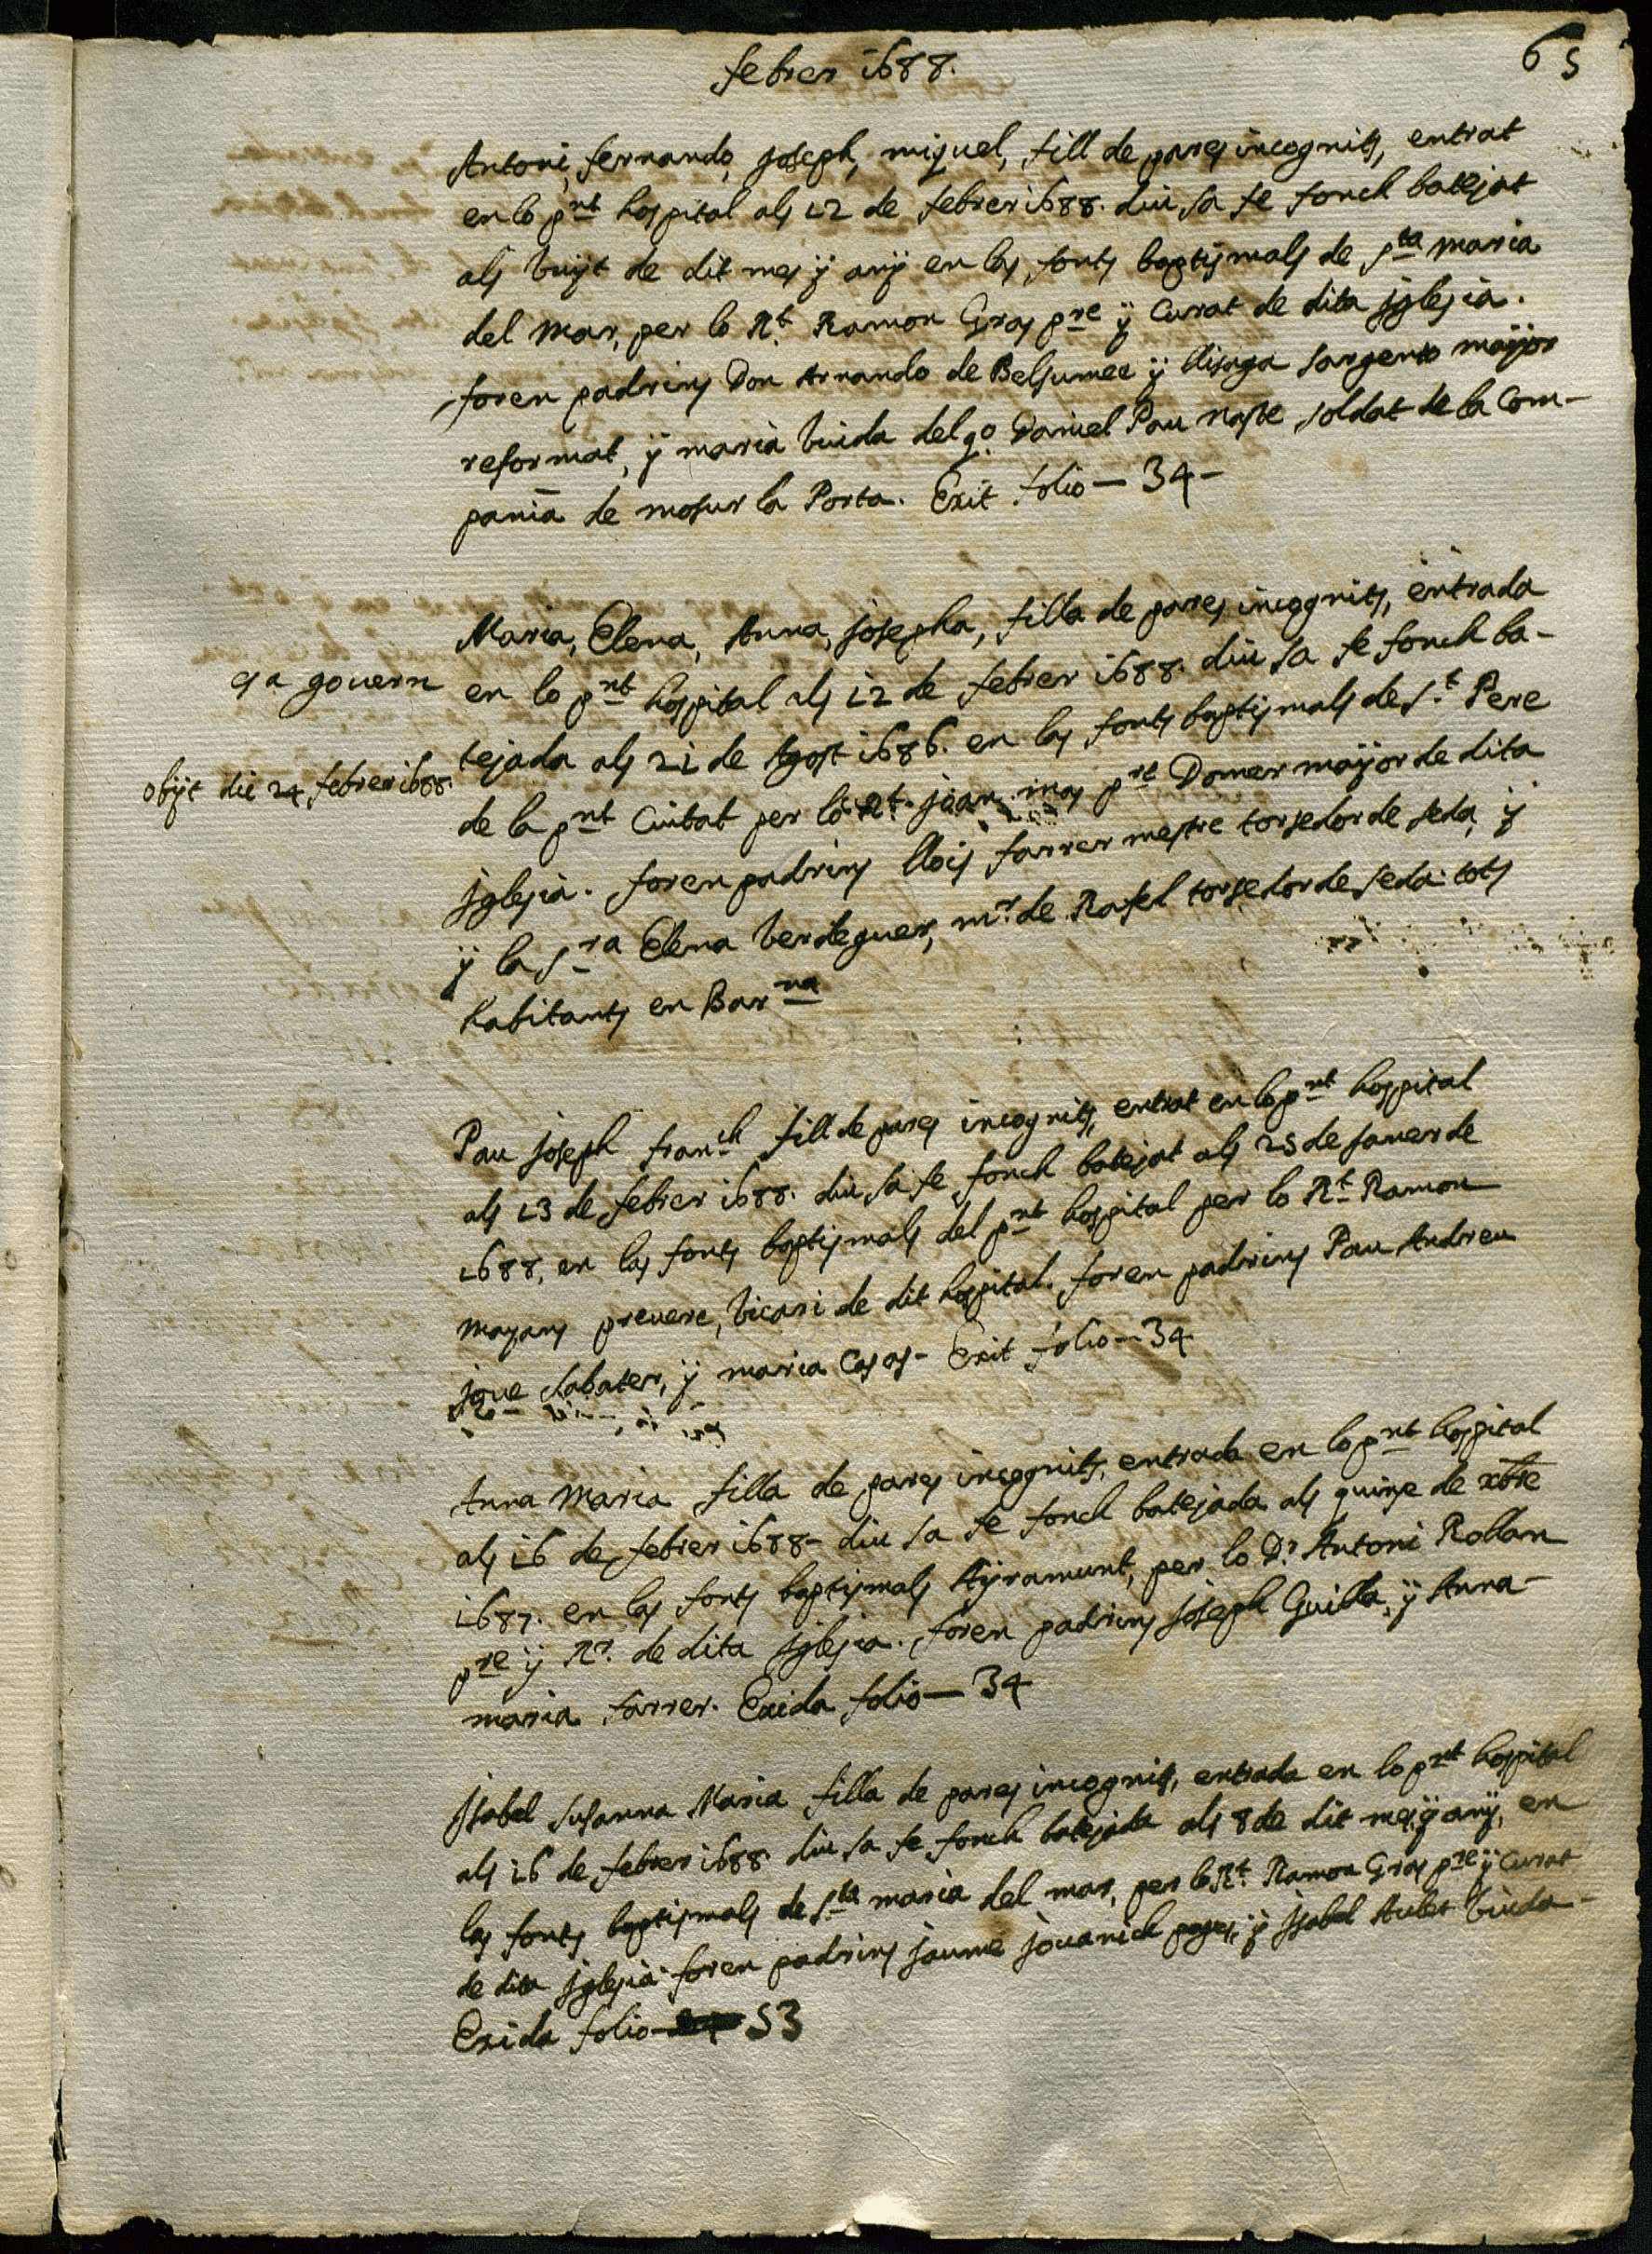 febrer 1688.
65
Antoni, fernando, joseph, miquel, fill de pares incognits, entrat
en lo pnt hospital als 12 de febrer 1688. diu sa fe fonch batejat
als vuyt de dit mes ÿ anÿ en las fonts baptismals de sta maria
del mar, per lo Rt. Ramon Gras pre ÿ Curat de dita jglesia.
foren padrins Don Arnando de Belsumee ÿ llisaga sargento maÿor
reformat, ÿ maria viuda del qo. Daniel Pau naste soldat de la Com-
pania de mosur la Porta. Exit folio — 34 -
Maria, Elena, Anna, josepha, filla de pares incognits, entrada
es a govern
en lo pnt hospital als 12 de febrer 1688. diu sa fe fonch ba-
tejada als 21 de Agost 1686. en las fonts baptismals de st. Pere
obÿt die 24 febrer 1688.
de la pnt Ciutat per lo Rt. joan mas pre Domer maÿor de dita
jglesia. foren padrins llois farrer mestre torsedor de seda, ÿ
ÿ la sra Elena verdeguer, mr. de Rafel torsedor de seda tots
habitants en Barna
Pau joseph franch fill de pares incognits, entrat en lo pnt hospital
als 13 de febrer 1688. diu sa fe fonch batejat als 25 de janer de
1688, en las fonts baptismals del pnt hospital per lo Rt Ramon
mayans prevere, vicari de dit hospital. foren padrins Pau Andreu
jove sabater, ÿ maria Casas - Exit folio — 34
Anna Maria filla de pares incognits, entrada en lo pnt hospital
als 16 de febrer 1688 - diu sa fe fonch batejada als quinse de xbre
1687. en las fonts baptismals Aÿramunt, per lo Dr. Antoni Rollan
pre ÿ Rr. de dita jglesia. foren padrins joseph Guilla, ÿ Anna -
maria farrer. Exida folio — 34
jsabel susanna Maria filla de pares incognits, entrada en lo pnt hospital
als 16 de febrer 1688. diu sa fe fonch batejada als 8 de dit mes ÿ anÿ, en
las fonts baptismals de sta maria del mar, per lo Rt. Ramon Gras pre ÿ Curat
de dita jglesia foren padrins jaume jovanich pages, ÿ jsabel Aulet viuda -
Exida folio 53